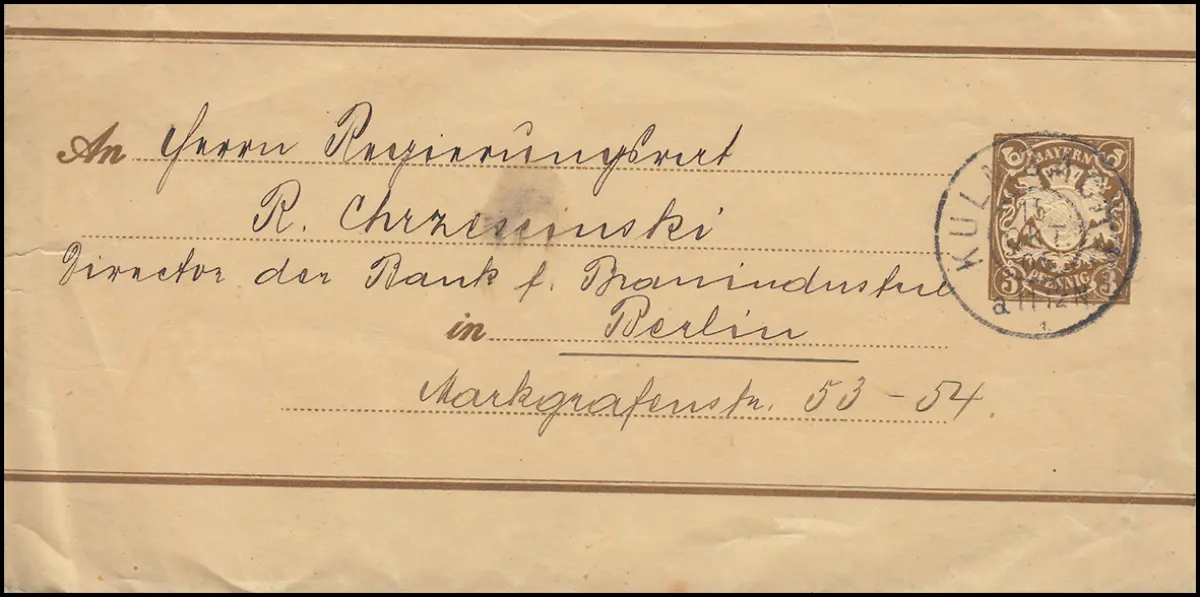 An Herrn Regierungsrat
R. Chrzescinski
Director der Bank f. Brauindustrie
in Berlin
Markgrafenstr. 53-54.
BAYERN
3 3
PFENNIG
KULMBACH
15
a 11-12 N
1